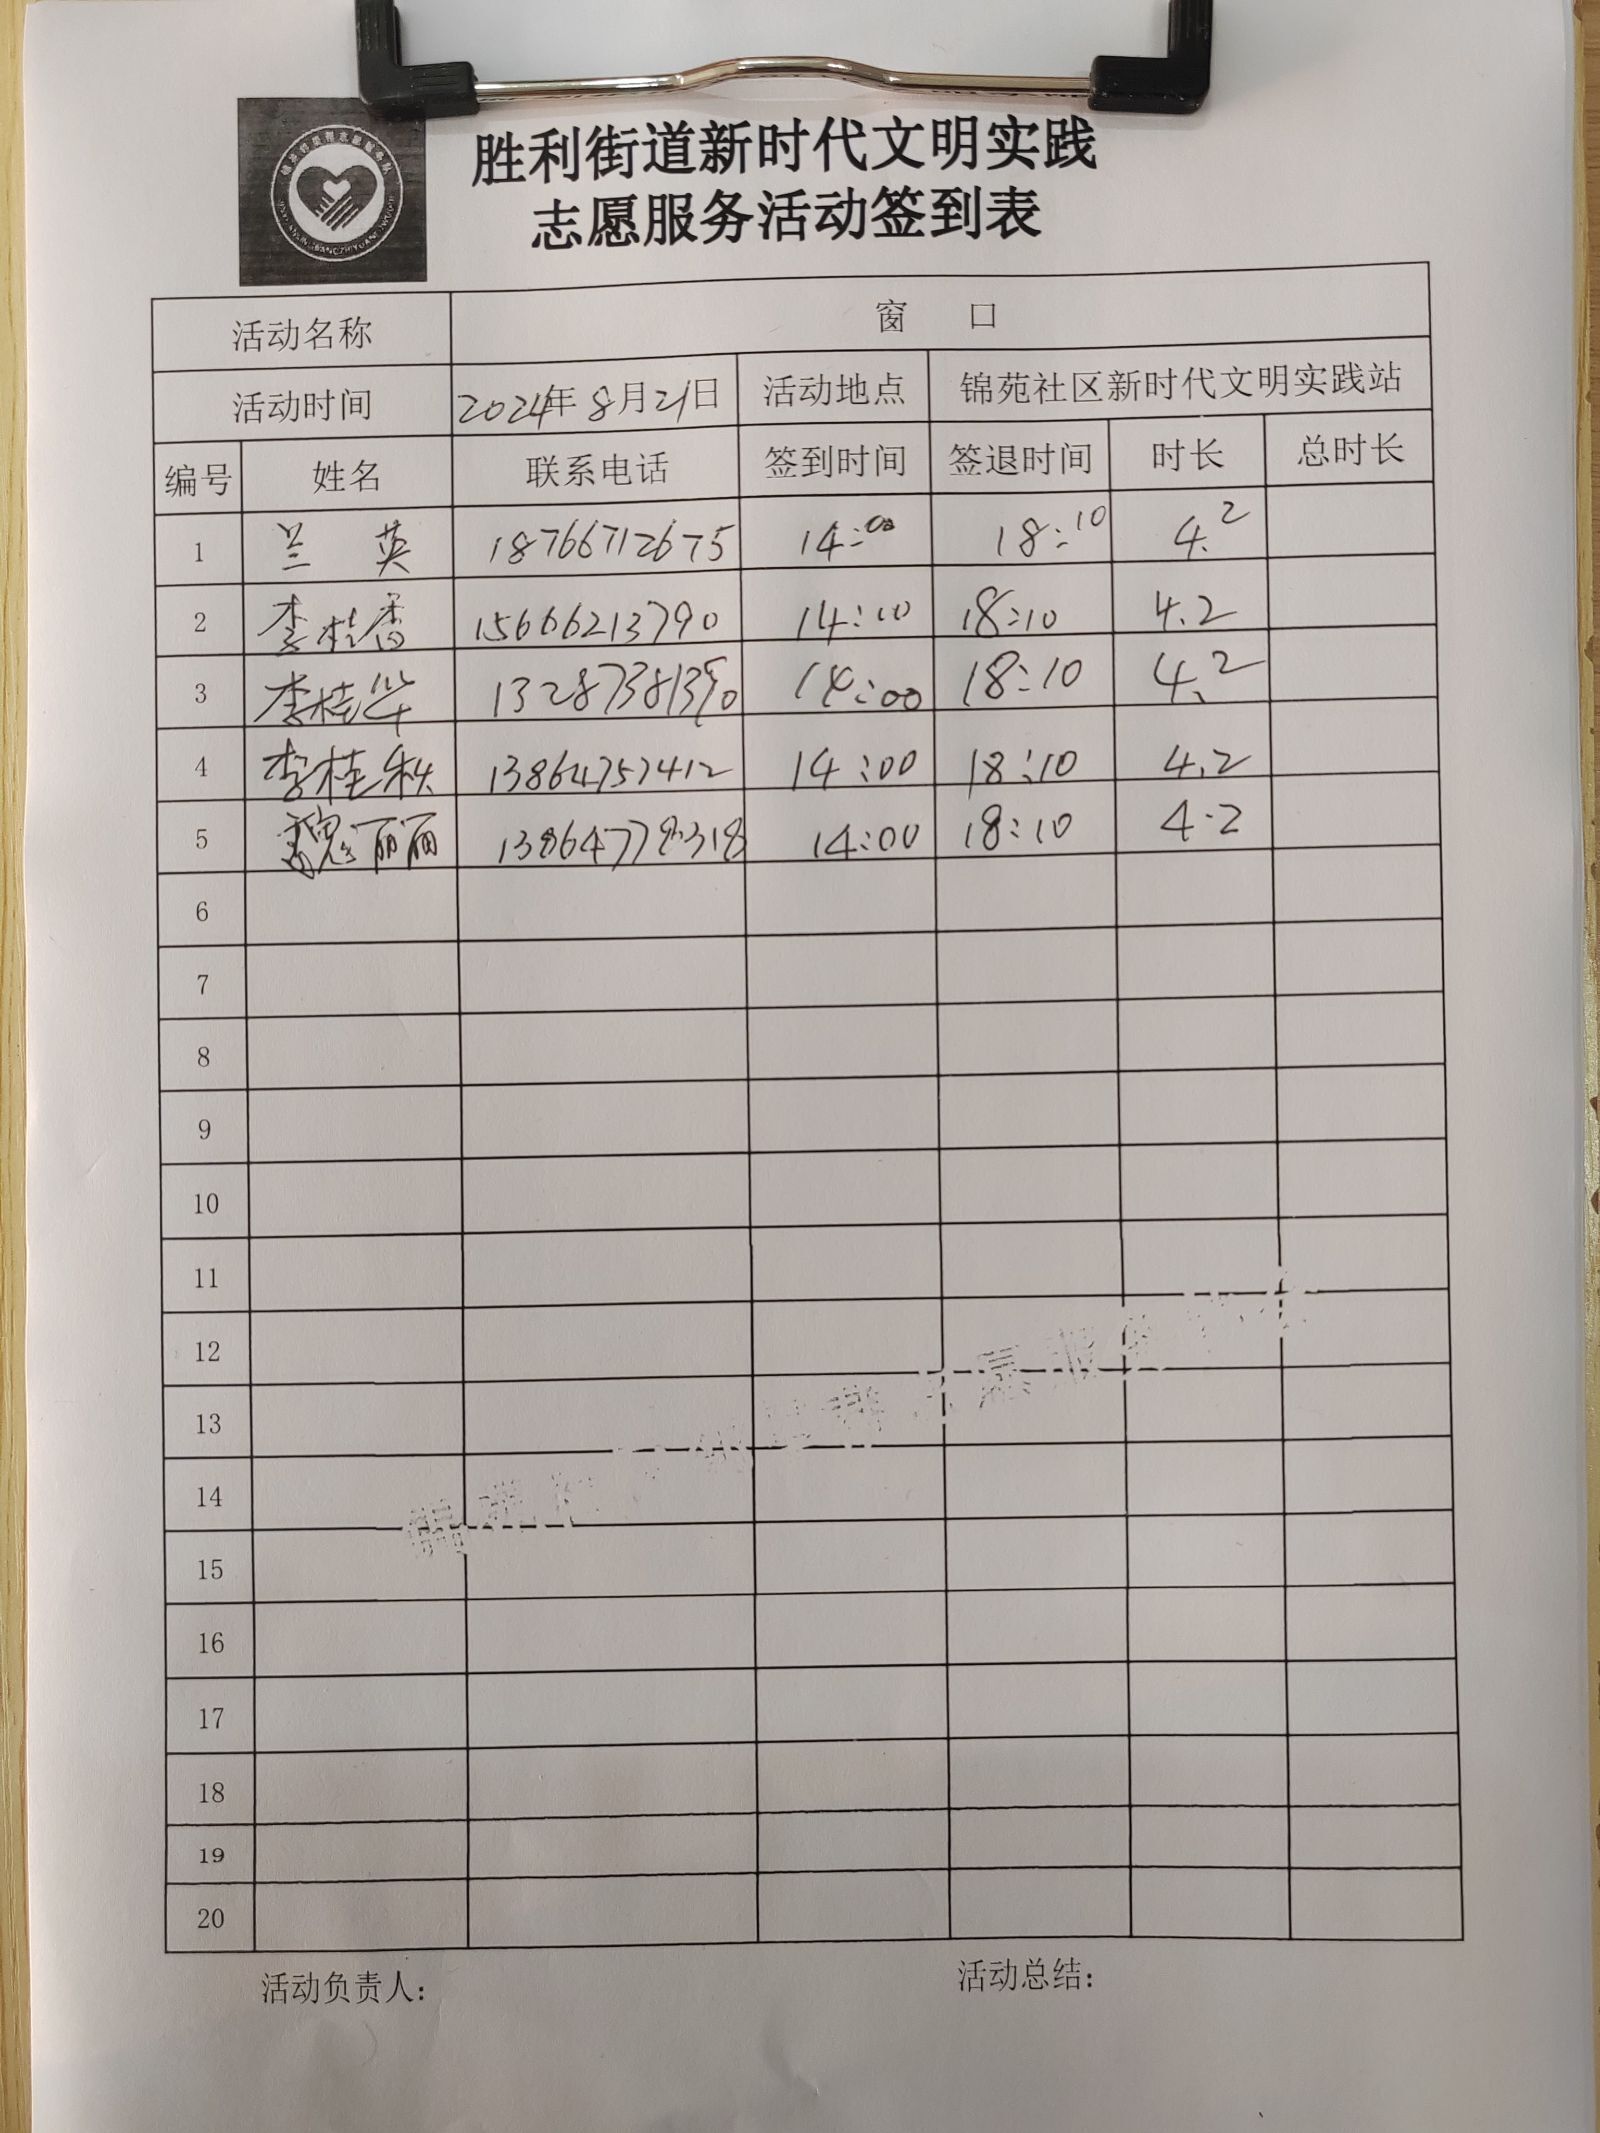 胜利街道新时代文明实践
志愿服务活动签到表
活动名称 窗 口
活动时间 2024年8月21日 活动地点 锦苑社区新时代文明实践站
编号 姓名 联系电话 签到时间 签退时间 时长 总时长
1 兰 英 18766712675 14:00 18:10 4.2
2 李桂香 15666213790 14:00 18:10 4.2
3 李桂华 14:00 18:10 4.2
4 李桂秋 13864757412 14:00 18:10 4.2
5 魏丽丽 13864778318 14:00 18:10 4.2
6
7
8
9
10
11
12
13
14
15
16
17
18
19
20
活动负责人: 活动总结: